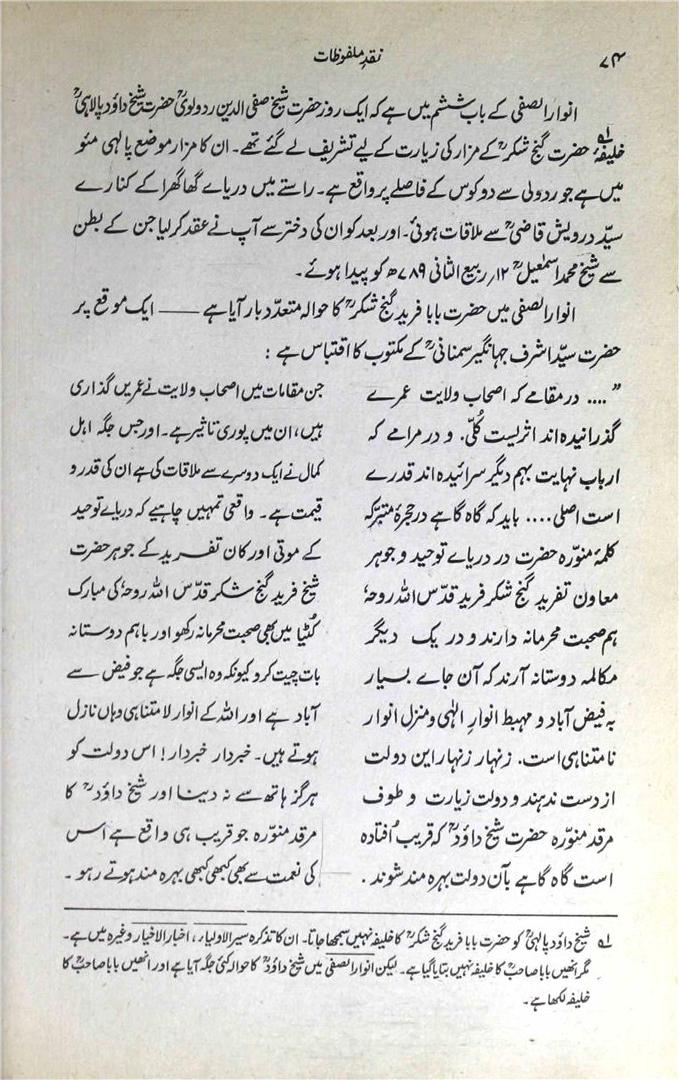 ۷۴
نقدِ ملفوظات
انوار الصفی کے باب ششم میں ہے کہ ایک روز حضرت شیخ صفی الدین ردولویؒ حضرت شیخ داؤد پالہیؒ
خلیفۂ لہ حضرت گنج شکرؒ کے مزار کی زیارت کے لیے تشریف لے گئے تھے۔ ان کا مزار موضع پالہی مئو
میں ہے جو ردولی سے دو کوس کے فاصلے پر واقع ہے۔ راستے میں دریاے گھاگھرا کے کنارے
سیّد درویش قاضیؒ سے ملاقات ہوئی۔ اور بعد کو ان کی دختر سے آپ نے عقد کرلیا جن کے بطن
سے شیخ محمد اسمٰعیلؒ ۱۲؍ ربیع الثانی ۷۸۹ھ کو پیدا ہوئے۔
انوار الصفی میں حضرت بابا فرید گنج شکرؒ کا حوالہ متعدد بار آیا ہے —— ایک موقع پر
حضرت سیّد اشرف جہانگیر سمنانیؒ کے مکتوب کا اقتباس ہے :
” .... در مقامے کہ اصحاب ولایت عمرے
گذرانیدہ اند اثریست کُلّی. و در مرامے کہ
ارباب نہایت بہم دیگر سرائیدہ اند قدرے
است اصلی .... باید کہ گاہ گاہے در حجرۂ متبرّکہ
کلمۂ منوّرہ حضرت در دریاے توحید و جوہر
معاون تفرید گنج شکر فرید قدّس اللہ روحہٗ
ہم صحبت محرمانہ دارند و در یک دیگر
مکالمہ دوستانہ آرند کہ آن جاے بسیار
بہ فیض آباد و مہبط انوارِ الٰہی و منزل انوار
نامتناہی است. زنہار زنہار این دولت
از دست ندہند و دولت زیارت و طوف
مرقد منوّرہ حضرت شیخ داؤدؒ کہ قریب اُفتادہ
است گاہ گاہے بآن دولت بہرہ مند شوند .
جن مقامات میں اصحاب ولایت نے عمریں گذاری
ہیں، ان میں پوری تاثیر ہے۔ اور جس جگہ اہل
کمال نے ایک دوسرے سے ملاقات کی ہے ان کی قدر و
قیمت ہے۔ واقعی تمہیں چاہیے کہ دریاے توحید
کے موتی اور کان تفرید کے جوہر حضرت
شیخ فرید گنج شکر قدّس اللہ روحہٗ کی مبارک
کُٹیا میں بھی صحبت محرمانہ رکھو اور باہم دوستانہ
بات چیت کرو کیونکہ وہ ایسی جگہ ہے جو فیض سے
آباد ہے اور اللہ کے انوار لامتناہی وہاں نازل
ہوتے ہیں۔ خبردار خبردار! اس دولت کو
ہرگز ہاتھ سے نہ دینا اور شیخ داؤدؒ کا
مرقد منوّرہ جو قریب ہی واقع ہے اُس
کی نعمت سے بھی کبھی کبھی بہرہ مند ہوتے رہو۔
لہ شیخ داؤد پالہیؒ کو حضرت بابا فرید گنج شکرؒ کا خلیفہ نہیں سمجھا جاتا۔ ان کا تذکرہ سیر الاولیار، اخبار الاخیار وغیرہ میں ہے۔
مگر انھیں بابا صاحبؒ کا خلیفہ نہیں بتایا گیا ہے۔ لیکن انوار الصفی میں شیخ داؤدؒ کا حوالہ کئی جگہ آیا ہے اور انھیں بابا صاحبؒ کا
خلیفہ لکھا ہے۔